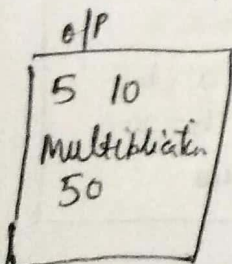 O/P
5 10
Multiplicatn
50